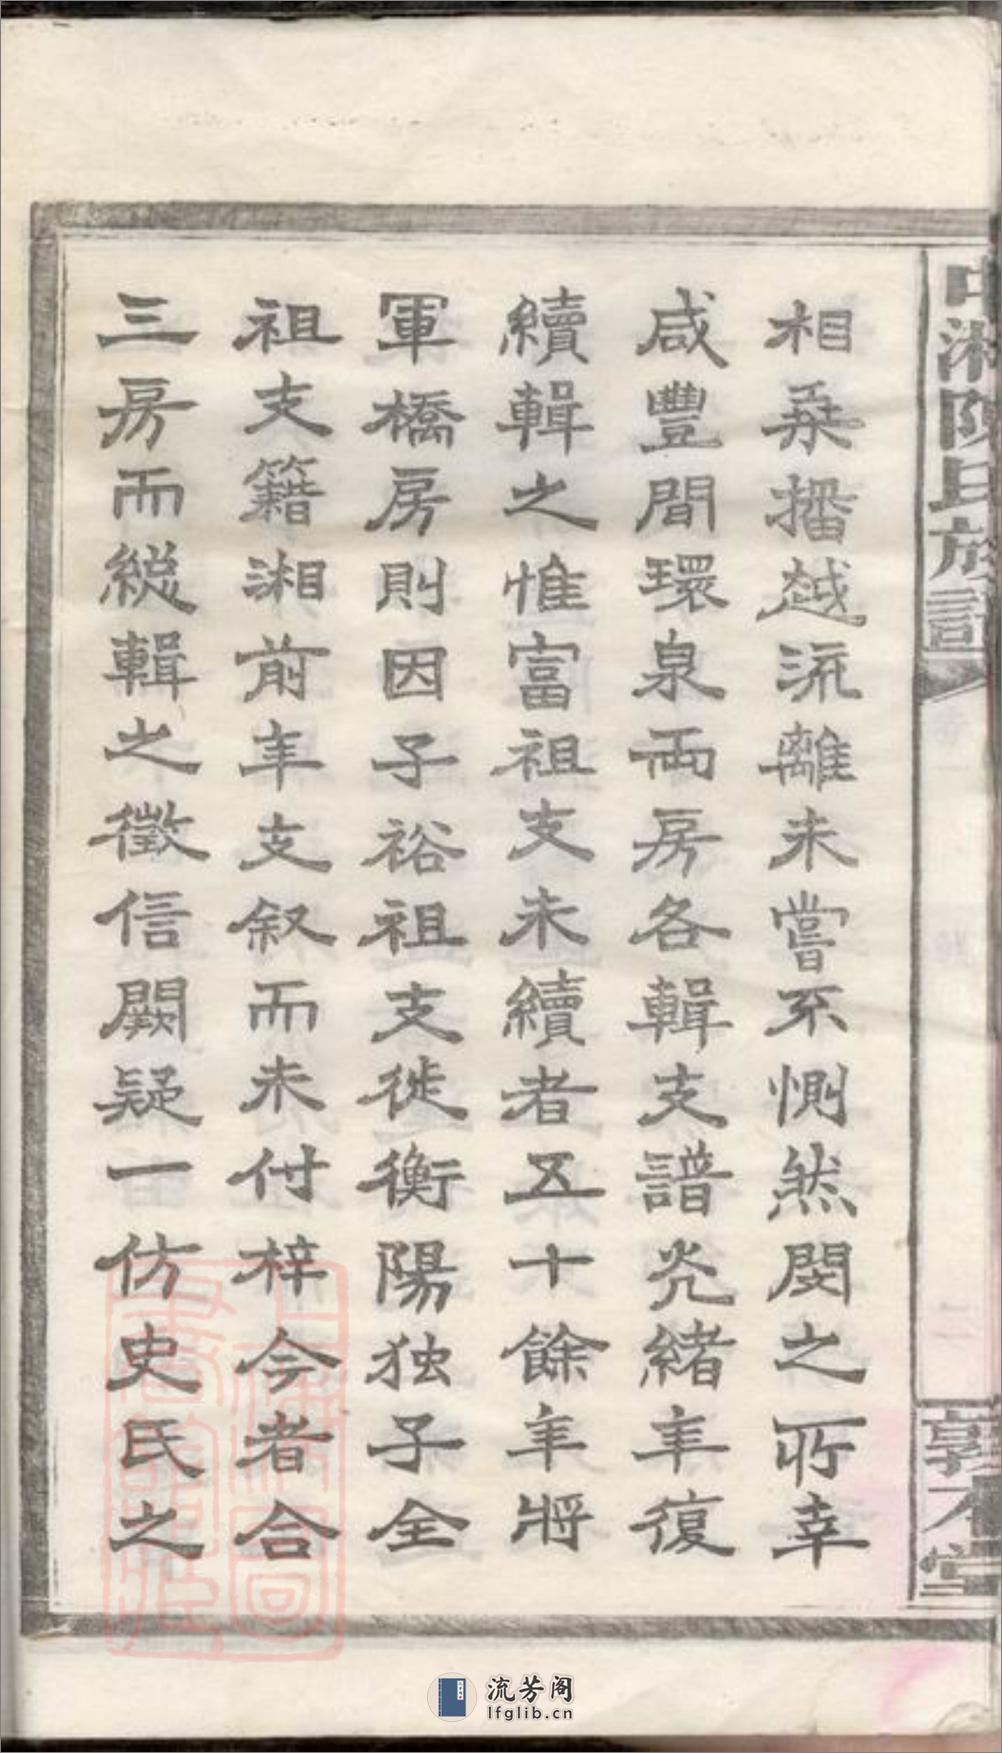 相乘播越流離未嘗不惻然閔之所幸
咸豐間環泉両房各輯支譜光緒年復
續輯之惟富祖支未續者五十餘年將
軍橋房則因子裕祖支徙衡陽独子全
祖支籍湘前年支叙而未付梓今者合
三房而総輯之徵信闕疑一仿史氏之
中湘陳氏族譜
敦本堂
流芳阁
lfglib.cn